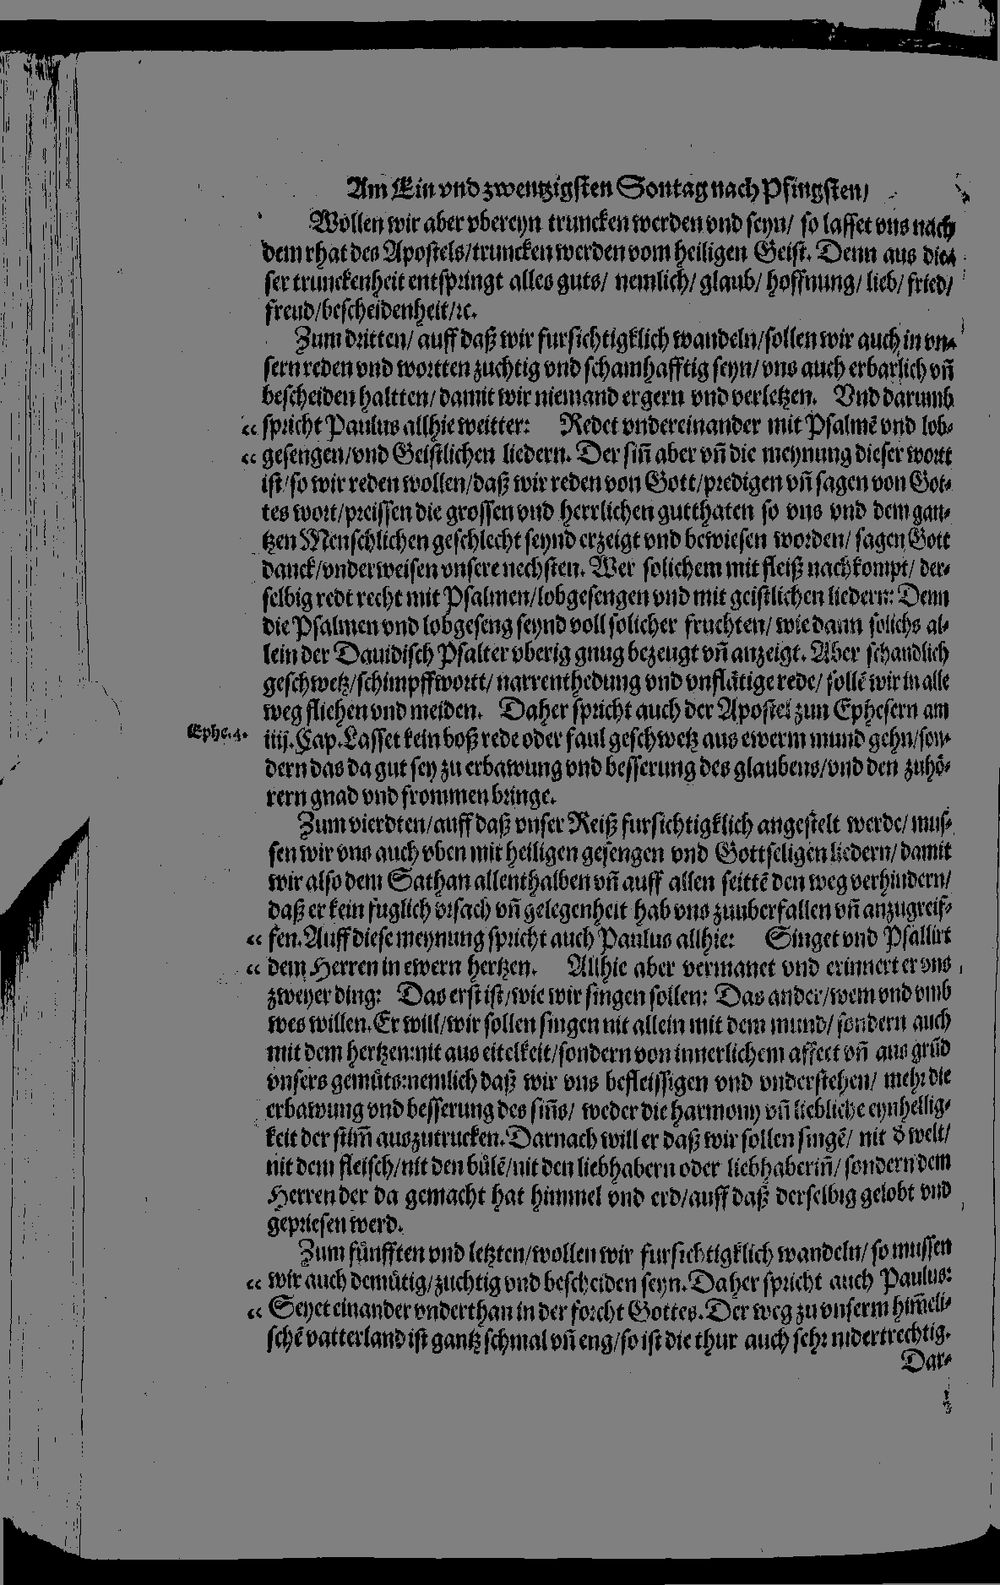 Am Ein vnd zwentzigsten Sontag nach Pfingsten/
Wollen wir aber vbereyn truncken werden vnd seyn/ so lasset vns nach
dem rhat des Apostels/truncken werden vom heiligen Geist. Denn aus die⸗
ser trunckenheit entspringt alles guts/ nemlich/ glaub/ hoffnung/ lieb/ fried/
freud/bescheidenheit/ꝛc.
Zum dritten/ auff daß wir fursichtigklich wandeln/sollen wir auch in vn⸗
sern reden vnd wortten zuchtig vnd schamhafftig seyn/ vns auch erbarlich vn̄
bescheiden haltten/ damit wir niemand ergern vnd verletzen. Vnd darumb
“ spricht Paulus allhie weitter: Redet vndereinander mit Psalmē vnd lob⸗
“ gesengen/vnd Geistlichen liedern. Der sin̄ aber vn̄ die meynung dieser wort
ist/so wir reden wollen/daß wir reden von Gott/predigen vn̄ sagen von Got⸗
tes wort/preissen die grossen vnd herrlichen gutthaten so vns vnd dem gan⸗
tzen Menschlichen geschlecht seynd erzeigt vnd bewiesen worden/ sagen Gott
danck/vnderweisen vnsere nechsten. Wer solichem mit fleiß nachkompt/ der⸗
selbig redt recht mit Psalmen/lobgesengen vnd mit geistlichen liedern: Denn
die Psalmen vnd lobgeseng seynd voll solicher fruchten/ wie dann solichs al⸗
lein der Dauidisch Psalter vberig gnug bezeugt vn̄ anzeigt. Aber schandlich
geschwetz/schimpffwortt/ narrenthedung vnd vnflätige rede/ sollē wir in alle
weg fliehen vnd meiden. Daher spricht auch der Apostel zun Ephesern am
Ephe.4. iiij. Cap. Lasset kein boß rede oder faul geschwetz aus ewerm mund gehn/son⸗
dern das da gut sey zu erbawung vnd besserung des glaubens/vnd den zuhö⸗
rern gnad vnd frommen bringe.
Zum vierdten/auff daß vnser Reiß fursichtigklich angestelt werde/ mus⸗
sen wir vns auch vben mit heiligen gesengen vnd Gottseligen liedern/ damit
wir also dem Sathan allenthalben vn̄ auff allen seittē den weg verhindern/
daß er kein fuglich vrsach vn̄ gelegenheit hab vns zuuberfallen vn̄ anzugreif⸗
“ fen. Auff diese meynung spricht auch Paulus allhie: Singet vnd Psallirt
“ dem Herren in ewern hertzen. Allhie aber vermanet vnd erinnert er vns
zweyer ding: Das erst ist/wie wir singen sollen: Das ander/wem vnd vmb
wes willen. Er will/wir sollen singen nit allein mit dem mund/ sondern auch
mit dem hertzen:nit aus eitelkeit/sondern von innerlichem affect vn̄ aus grūd
vnsers gemüts:nemlich daß wir vns befleissigen vnd vnderstehen/ mehr die
erbawung vnd besserung des sin̄s/ weder die harmony vn̄ liebliche eynhellig⸗
keit der stim̄ auszutrucken. Darnach will er daß wir sollen singē/ nit d̄ welt/
nit dem fleisch/nit den bůlē/nit den liebhabern oder liebhaberin̄/ sondern dem
Herren der da gemacht hat himmel vnd erd/auff daß derselbig gelobt vnd
gepriesen werd.
Zum fünfften vnd letzten/wollen wir fursichtigklich wandeln/ so mussen
“ wir auch demütig/zuchtig vnd bescheiden seyn. Daher spricht auch Paulus:
“ Seyet einander vnderthan in der forcht Gottes. Der weg zu vnserm him̄eli⸗
schē vatterland ist gantz schmal vn̄ eng/so ist die thur auch sehr nidertrechtig.
Dar⸗